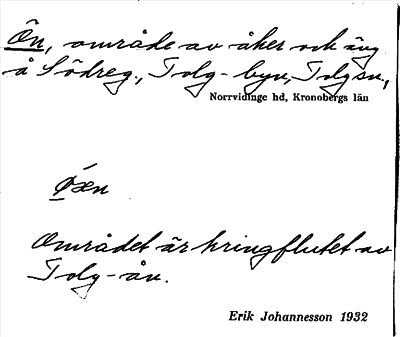 Ön, område av åker och äng
å Södreg., Tolg-byn, Tolgsn.,
Norrvidinge hd, Kronobergs län
Området är kringflutet av
Tolg-ån.
Erik Johannesson 1932